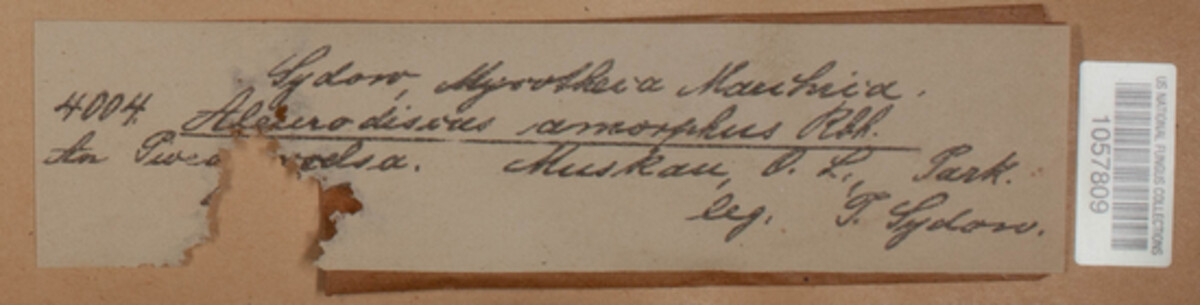 Sydow, Myrotheia Marchica.
4004. Aleurodiscus amorphus Rbh.
An Picea excelsa. Muskau, O. L., Park.
leg. P. Sydow.
US NATIONAL FUNGUS COLLECTIONS
1057809